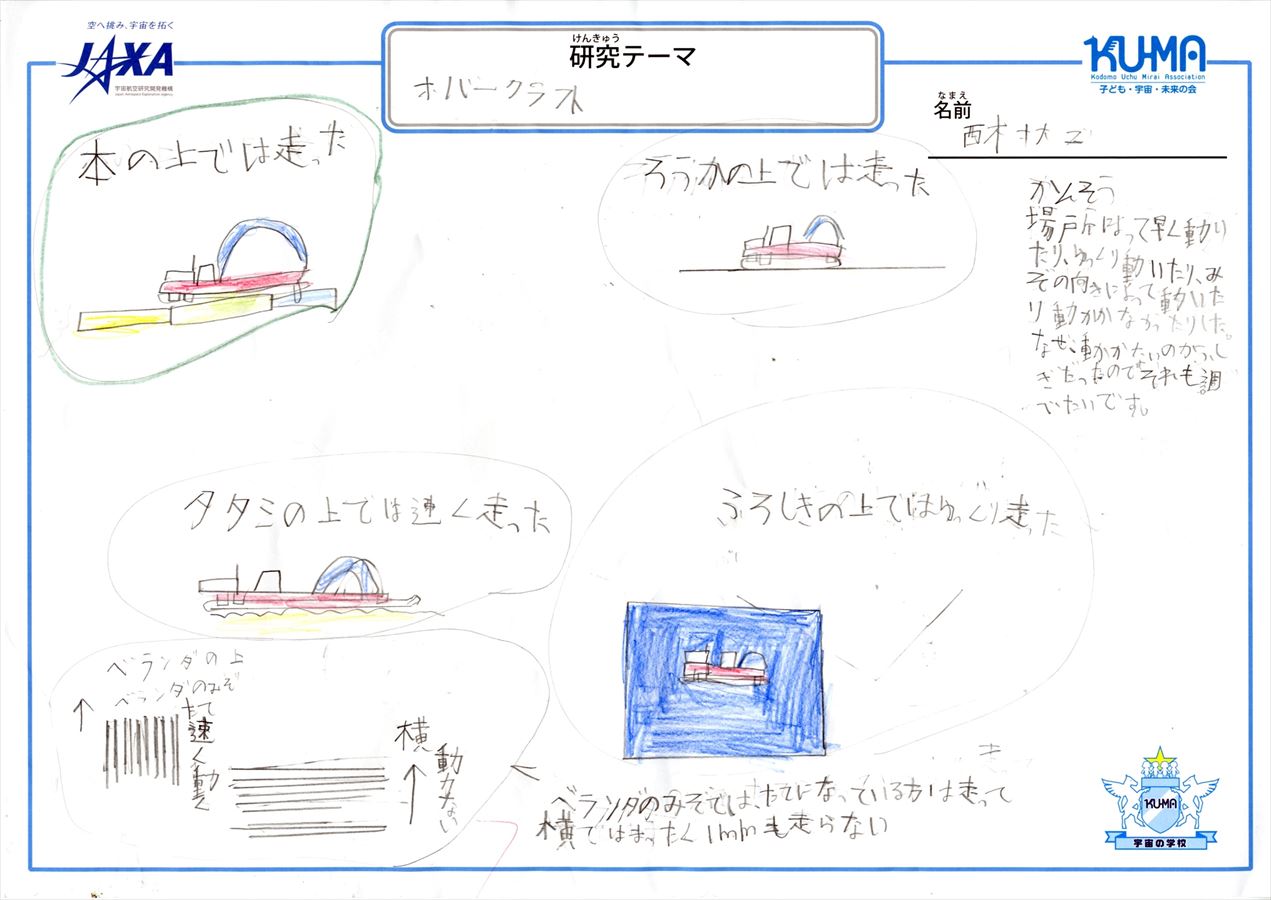 空へ挑み、宇宙を拓く
JAXA
宇宙航空研究開発機構
Japan Aerospace Exploration Agency
けんきゅう
研究テーマ
ホバークラフト
KU-MA
Kodomo Uchu Mirai Association
子ども・宇宙・未来の会
なまえ
名前
本の上では走った
ろうかの上では走った
かんそう
場戸所によって早く動い
たり、ゆっくり動いたり、み
ぞの向きによって動いた
り動かかなかったりした。
なぜ、動かかたいのか、ふし
ぎだったのでそれも調
べたいです。
タタミの上では速く走った
ふろしきの上ではゆっくり走った
ベランダの上
ベランダのみぞ
たて
速く動く
横
動かない
ベランダのみぞでは、たてになっている方は走って
横ではまったく1mmも走らない
KU-MA
宇宙の学校